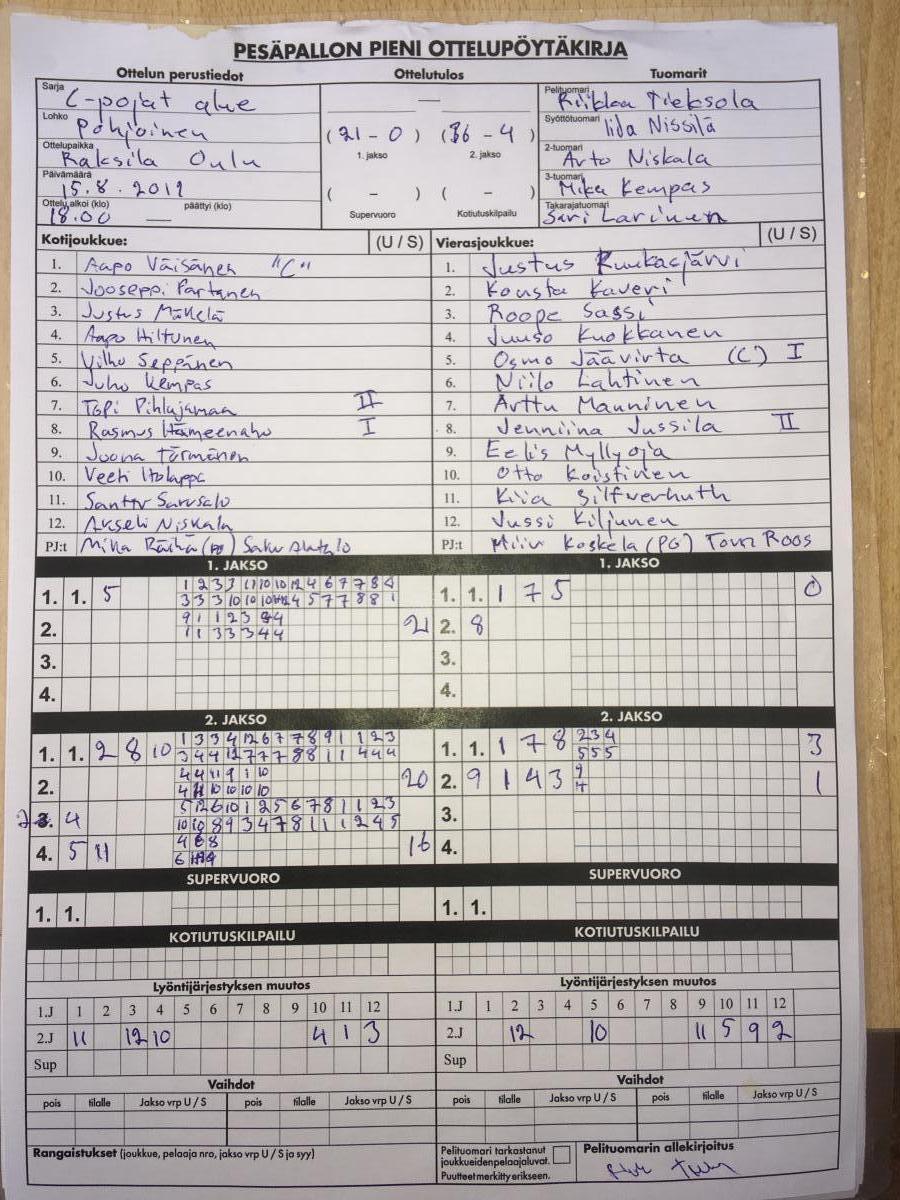 PESÄPALLON PIENI OTTELUPÖYTÄKIRJA
Ottelun perustiedot Ottelutulos Tuomarit
Sarja C-pojat alue
Lohko Pohjoinen
Ottelupaikka Raksila Oulu
Päivämäärä 15.8.2019
Ottelu alkoi (klo) 18.00 — päättyi (klo)
—
(21 - 0) (36 - 4)
1. jakso 2. jakso
( - ) ( - )
Supervuoro Kotiutuskilpailu
Pelituomari Riikka Tieksola
Syöttötuomari Iida Nissilä
2-tuomari Arto Niskala
3-tuomari Mika Kempas
Takarajatuomari Sari Larinen
Kotijoukkue: (U / S)
1. Aapo Väisänen "C"
2. Jooseppi Partanen
3. Justus Mäkelä
4. Aapo Hiltunen
5. Vilho Seppänen
6. Juho Kempas
7. Topi Pihlajamaa II
8. Rasmus Hämeenaho I
9. Joona Törmänen
10. Veeti
11. Santtu
12. Akseli Niskala
PJ:t Mika Räihä
Vierasjoukkue: (U / S)
1. Justus Ruukasjärvi
2. Kousta Kaveri
3. Roope Sassi
4. Juuso Kuokkanen
5. Osmo Jäävirta (C) I
6. Niilo Lahtinen
7. Arttu Manninen
8. Jenniina Jussila II
9. Eelis Myllyoja
10. Otto Koistinen
11. Kiia Silfverhuth
12. Jussi Kiljunen
PJ:t Koskela (PG) Roos
1. JAKSO
1. 1. 5
2. 21
3.
4.
1. JAKSO
1. 1. 1 7 5 0
2. 8
3.
4.
2. JAKSO
1. 1. 2 8 10 1 3 3 4 12 6 7 7 8 9 1 1 2 3
2. 20
3. 4
4. 5 11 16
2. JAKSO
1. 1. 1 7 8 2 3 4 3
5 5 5
2. 9 1 4 3 9 1
4
3.
4.
SUPERVUORO
1. 1.
SUPERVUORO
1. 1.
KOTIUTUSKILPAILU
KOTIUTUSKILPAILU
Lyöntijärjestyksen muutos
1.J 1 2 3 4 5 6 7 8 9 10 11 12
2.J 11 12 10 4 1 3
Sup
Lyöntijärjestyksen muutos
1.J 1 2 3 4 5 6 7 8 9 10 11 12
2.J 12 10 11 5 9 2
Sup
Vaihdot
pois tilalle Jakso vrp U / S pois tilalle Jakso vrp U / S
Vaihdot
pois tilalle Jakso vrp U / S pois tilalle Jakso vrp U / S
Rangaistukset (joukkue, pelaaja nro, jakso vrp U / S ja syy)
Pelituomari tarkastanut
joukkueidenpelaajaluvat.
Puutteet merkitty erikseen.
Pelituomarin allekirjoitus